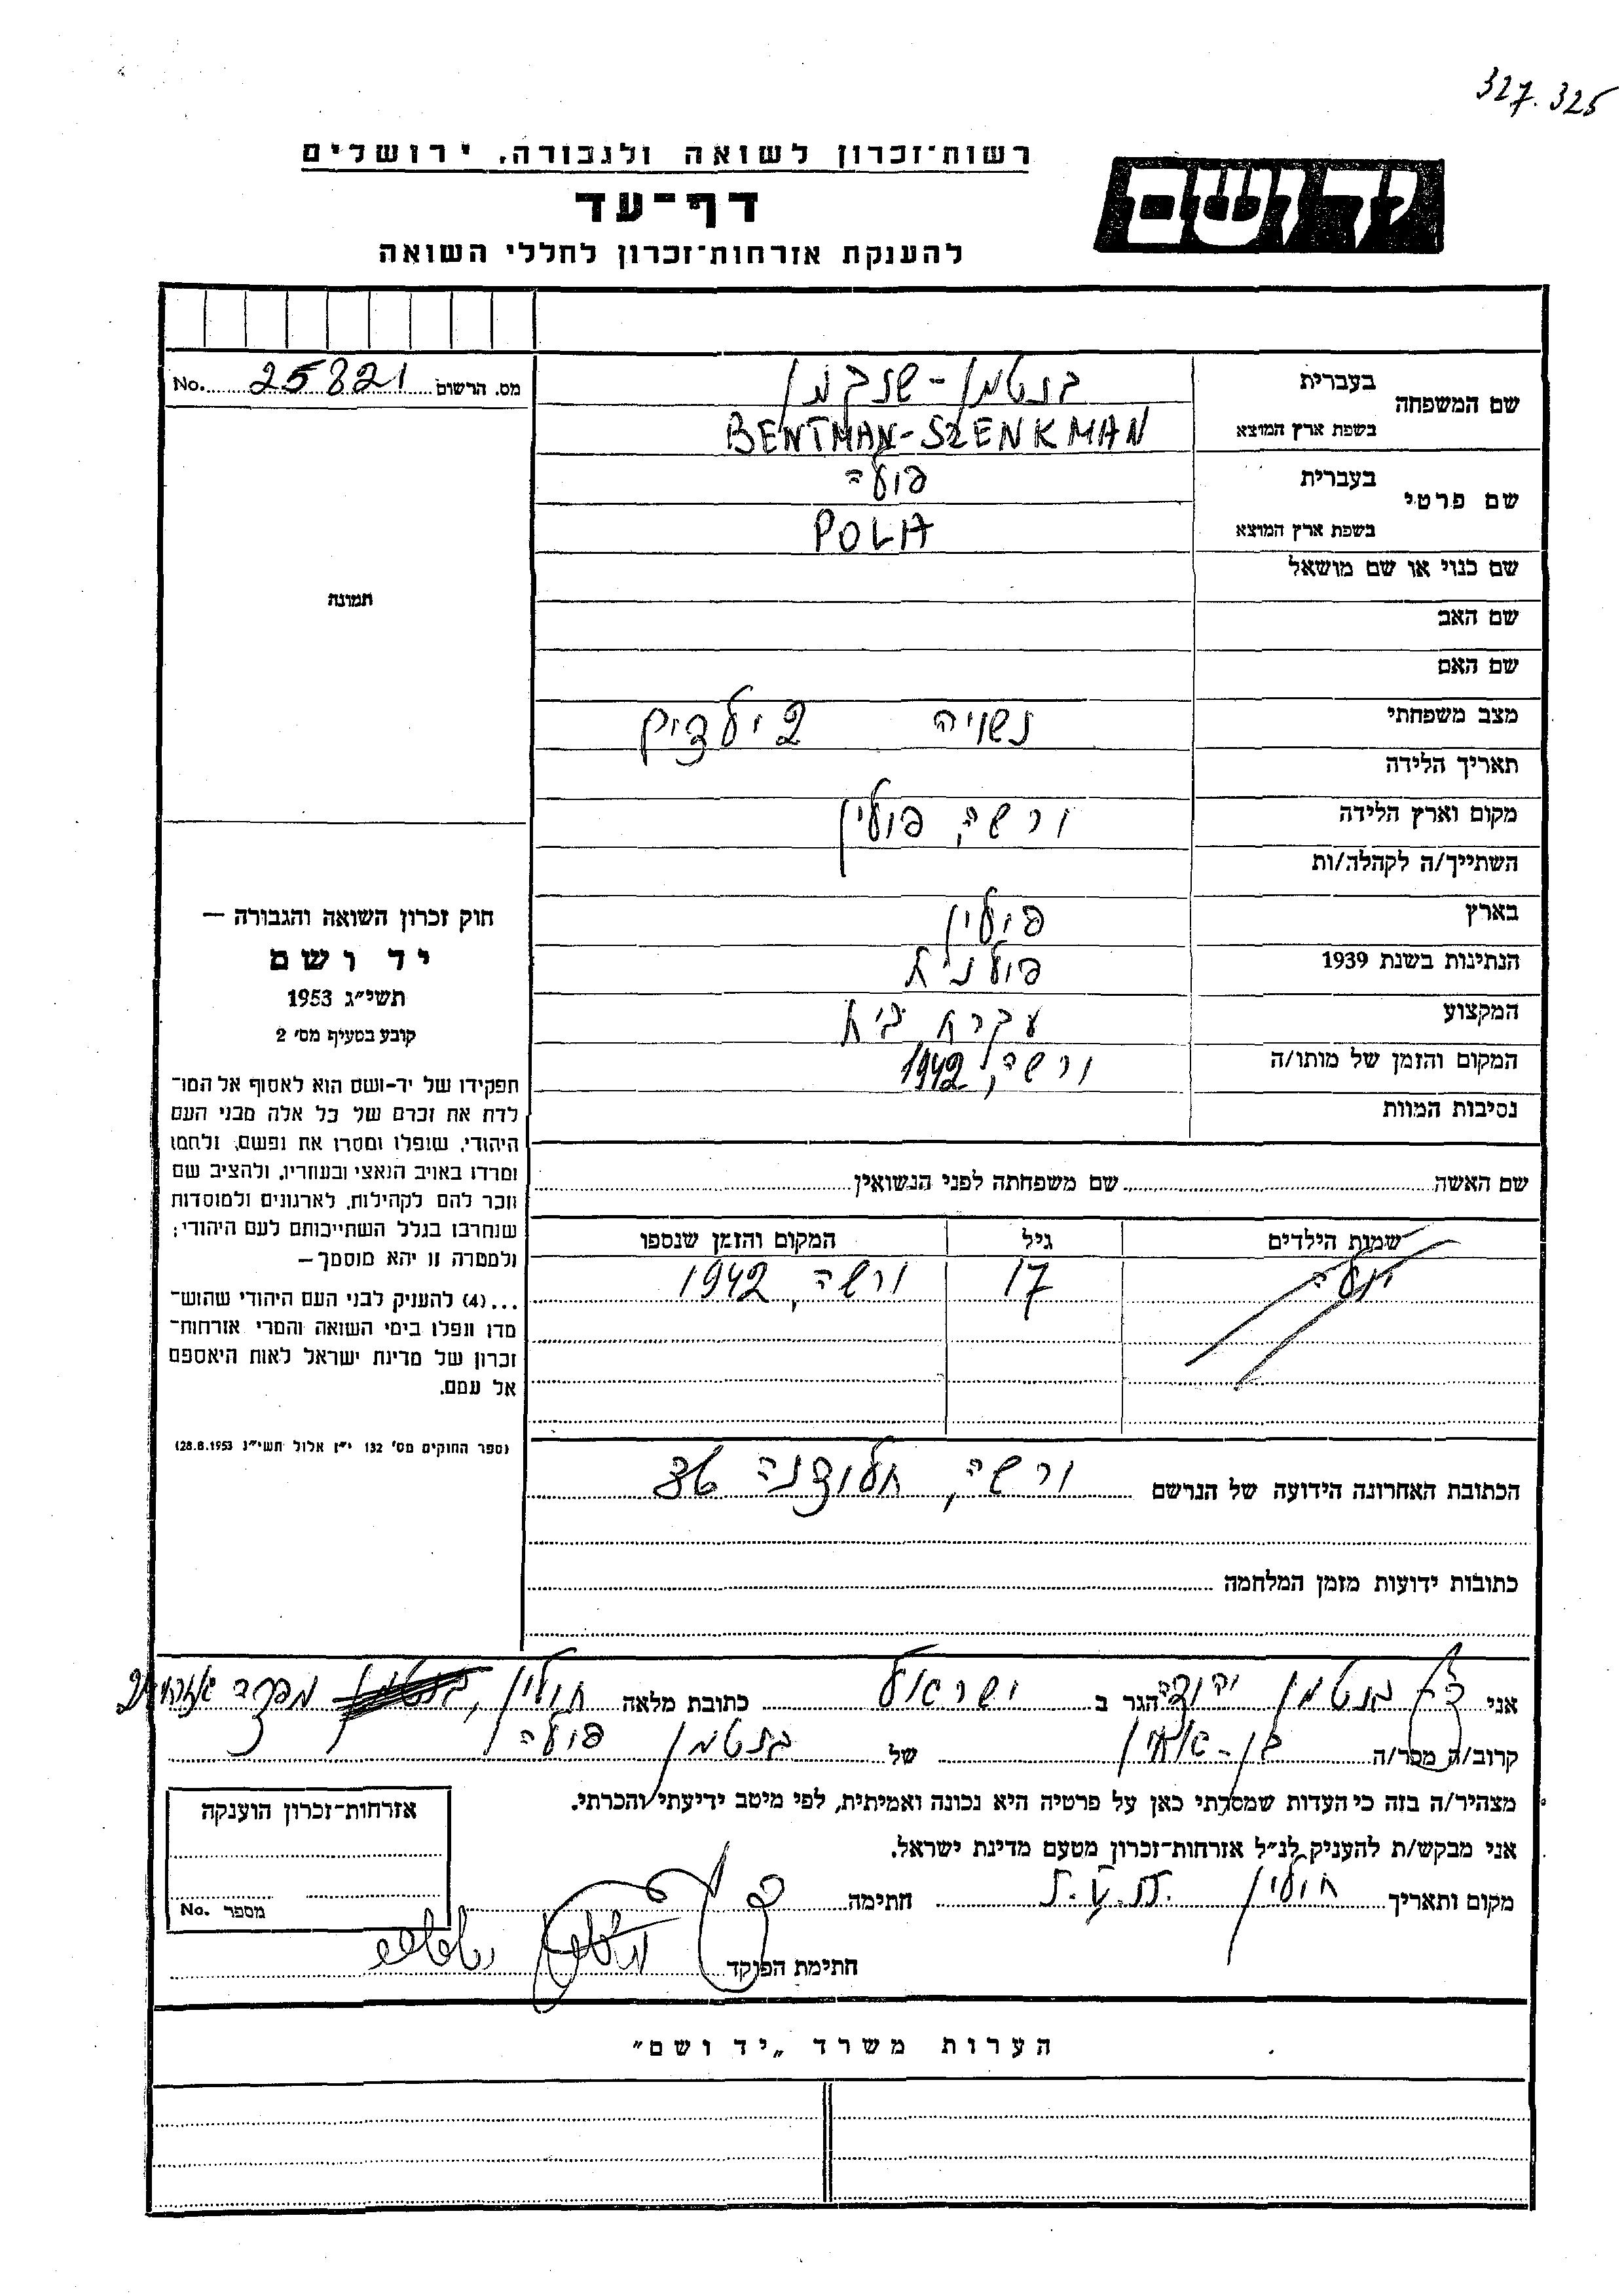 327.325
יד ושם
רשות־זכרון לשואה ולגבורה, ירושלים
דף־עד
להענקת אזרחות־זכרון לחללי השואה
מס. הרשום No. 25821
שם המשפחה
בעברית בנטמן - שנקמן
בשפת ארץ המוצא BENTMAN-SZENKMAN
שם פרטי
בעברית פולה
בשפת ארץ המוצא POLA
שם כנוי או שם מושאל
שם האב
שם האם
מצב משפחתי נשויה 2 ילדים
תאריך הלידה
מקום וארץ הלידה ורשה, פולין
השתייך/ה לקהלה/ות
בארץ פולין
הנתינות בשנת 1939 פולנית
המקצוע עקרת בית
המקום והזמן של מותו/ה ורשה, 1942
נסיבות המוות
תמונה
חוק זכרון השואה והגבורה —
יד ושם
תשי״ג 1953
קובע בסעיף מס׳ 2
תפקידו של יד-ושם הוא לאסוף אל המו־
לדת את זכרם של כל אלה מבני העם
היהודי, שנפלו ומסרו את נפשם, נלחמו
ומרדו באויב הנאצי ובעוזריו, ולהציב שם
וזכר להם לקהילות, לארגונים ולמוסדות
שנחרבו בגלל השתייכותם לעם היהודי;
ולמטרה זו יהא מוסמך —
...(4) להעניק לבני העם היהודי שהוש־
מדו ונפלו בימי השואה והמרי אזרחות־
זכרון של מדינת ישראל לאות היאספם
אל עמם.
(ספר החוקים מס׳ 132 י״ז אלול תשי״ג 28.8.1953)
שם האשה שם משפחתה לפני הנשואין
שמות הילדים גיל המקום והזמן שנספו
17 ורשה, 1942
הכתובת האחרונה הידועה של הנרשם ורשה, חלודנה 36
כתובות ידועות מזמן המלחמה
אני בנטמן יהודה הגר ב ישראל כתובת מלאה חולון,
קרוב/ה מכר/ה בן-אחין של בנטמן פולה
מצהיר/ה בזה כי העדות שמסרתי כאן על פרטיה היא נכונה ואמיתית, לפי מיטב ידיעתי והכרתי.
אני מבקש/ת להענקת לנ״ל אזרחות־זכרון מטעם מדינת ישראל.
מקום ותאריך חולון חתימה
חתימת הפוקד
אזרחות־זכרון הוענקה
מספר No.
הערות משרד „יד ושם״